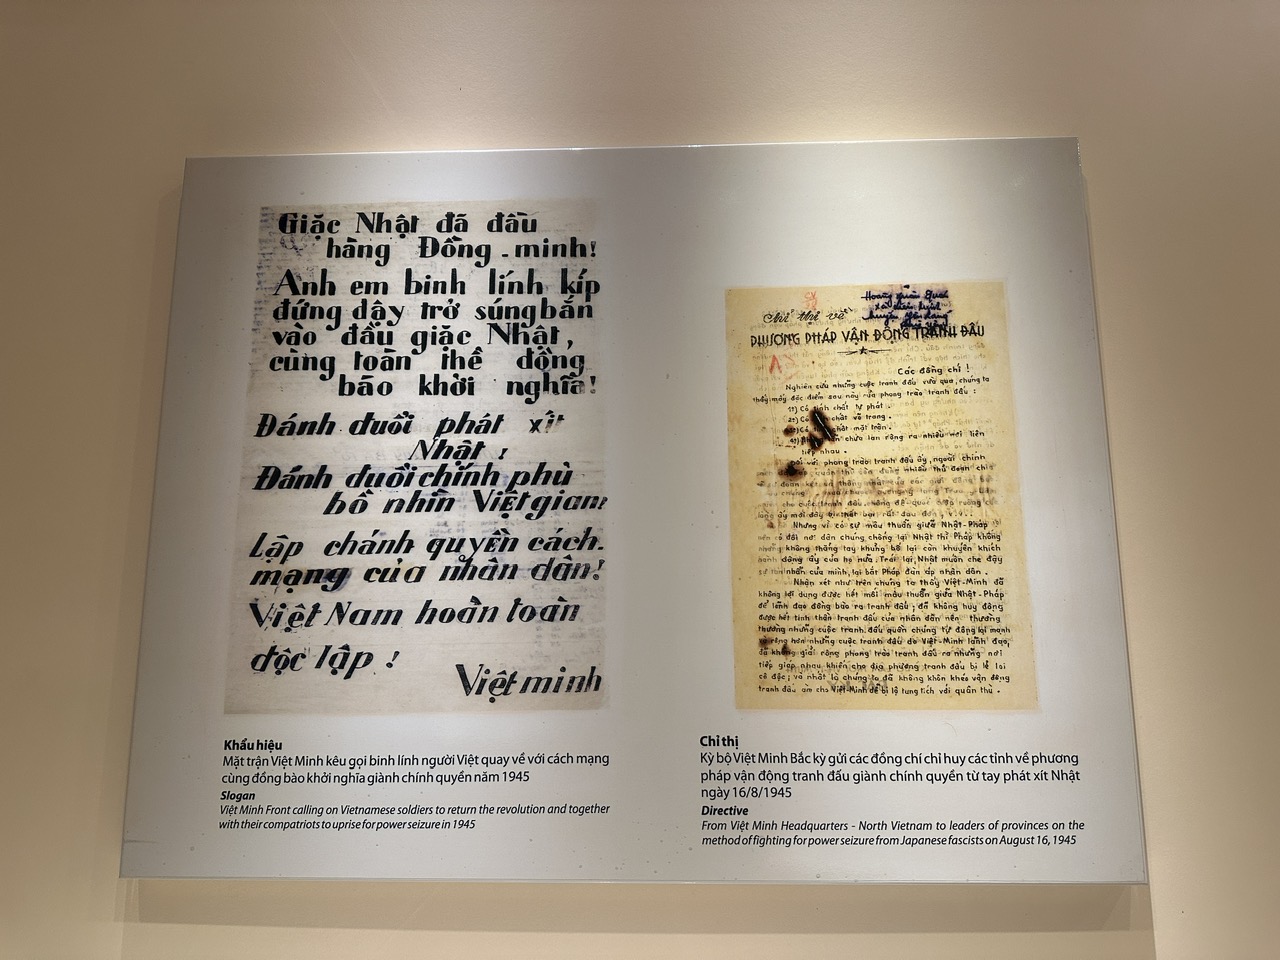 Giặc Nhật đã đầu
hàng Đồng - minh!
Anh em binh lính kíp
đứng dậy trở súng bắn
vào đầu giặc Nhật,
cùng toàn thể đồng
bào khởi nghĩa!
Đánh đuổi phát xít
Nhật!
Đánh đuổi chính phủ
bồ nhìn Việt gian!
Lập chánh quyền cách
mạng của nhân dân!
Việt Nam hoàn toàn
độc lập!
Việt minh
Khẩu hiệu
Mặt trận Việt Minh kêu gọi binh lính người Việt quay về với cách mạng
cùng đồng bào khởi nghĩa giành chính quyền năm 1945
Slogan
Việt Minh Front calling on Vietnamese soldiers to return the revolution and together
with their compatriots to uprise for power seizure in 1945
Chỉ thị về
PHƯƠNG PHÁP VẬN ĐỘNG TRANH ĐẤU
Các đồng chí!
Nghiên cứu những cuộc tranh đấu vừa qua, chúng ta
thấy mấy đặc điểm sau này của phong trào tranh đấu:
1) Có tính chất tự phát.
2) Có chất võ trang.
3) Có chất mặt trận.
4) chưa lan rộng ra nhiều nơi liên
tiếp nhau.
Đối với phong trào tranh đấu ấy, ngoài chính
Nhưng vì có sự mâu thuẫn giữa Nhật-Pháp
nên ở đôi nơi dân chúng chống lại Nhật thì Pháp không
những không thẳng tay khủng bố lại còn khuyến khích
hành động ấy của họ nữa. Trái lại, Nhật muốn che đậy
sự tàn nhẫn của mình, lại bắt Pháp đàn áp nhân dân.
Nhận xét như trên chúng ta thấy Việt-Minh đã
không lợi dụng được hết mối mâu thuẫn giữa Nhật-Pháp
để lãnh đạo đồng bào ra tranh đấu; đã không huy động
được hết tinh thần tranh đấu của nhân dân nên thường
thường những cuộc tranh đấu quần chúng tự động lại mạnh
và rộng hơn những cuộc tranh đấu do Việt-Minh lãnh đạo,
đã không giải rộng phong trào tranh đấu ra những nơi
tiếp giáp nhau khiến cho địa phương tranh đấu bị lẻ loi
cô độc; và nhất là chúng ta đã không khôn khéo vận động
tranh đấu làm cho Việt-Minh để bị lộ tung tích với quân thù.
Chỉ thị
Kỳ bộ Việt Minh Bắc kỳ gửi các đồng chí chỉ huy các tỉnh về phương
pháp vận động tranh đấu giành chính quyền từ tay phát xít Nhật
ngày 16/8/1945
Directive
From Việt Minh Headquarters - North Vietnam to leaders of provinces on the
method of fighting for power seizure from Japanese fascists on August 16, 1945